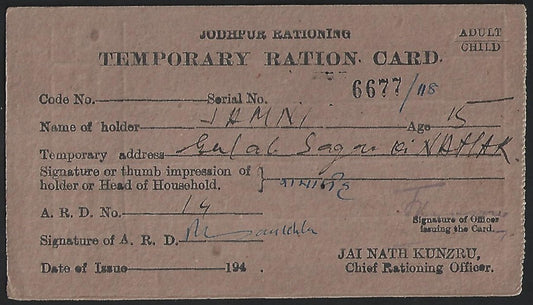 JODHPUR RATIONING
ADULT
CHILD
TEMPORARY RATION CARD.
6677/118
Code No. Serial No.
Name of holder JAMNI Age 15
Temporary address Gulab Sagar ki NAHAR.
Signature or thumb impression of
holder or Head of Household.
A. R. D. No. 14
Signature of A. R. D.
Signature of Officer
issuing the Card.
Date of Issue 194
JAI NATH KUNZRU,
Chief Rationing Officer.